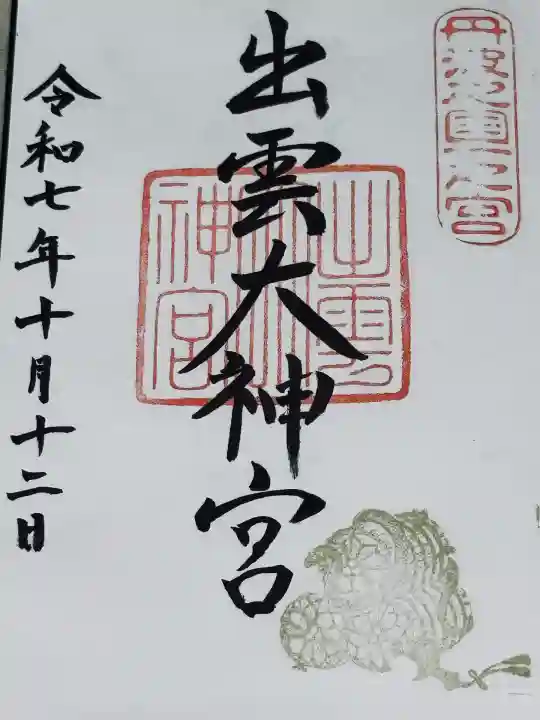 丹波之國一之宮
出雲大神宮
出雲大神宮
令和七年十月十二日